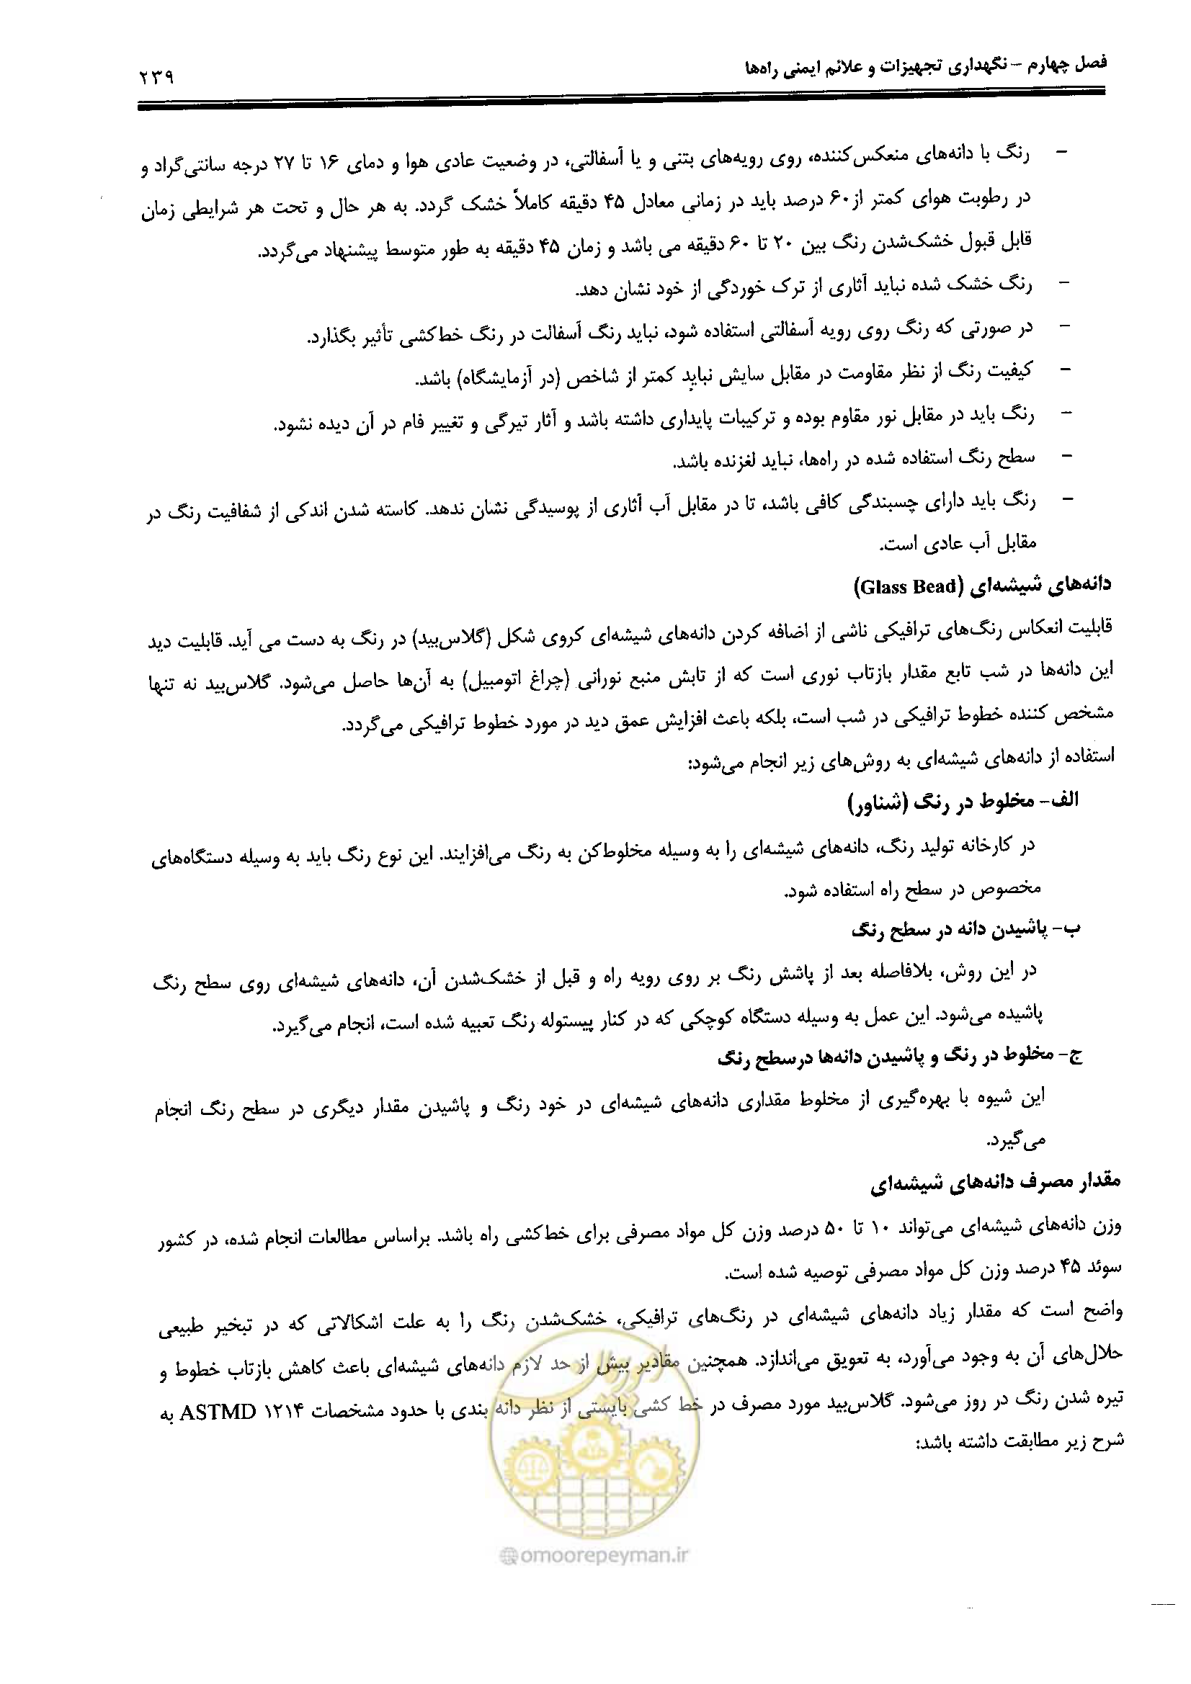 فصل چهارم – نگهداری تجهیزات و علائم ایمنی راه‌ها
۲۳۹
– رنگ با دانه‌های منعکس‌کننده، روی رویه‌های بتنی و یا آسفالتی، در وضعیت عادی هوا و دمای ۱۶ تا ۲۷ درجه سانتی‌گراد و
در رطوبت هوای کمتر از ۶۰ درصد باید در زمانی معادل ۴۵ دقیقه کاملاً خشک گردد. به هر حال و تحت هر شرایطی زمان
قابل قبول خشک‌شدن رنگ بین ۲۰ تا ۶۰ دقیقه می باشد و زمان ۴۵ دقیقه به طور متوسط پیشنهاد می‌گردد.
– رنگ خشک شده نباید آثاری از ترک خوردگی از خود نشان دهد.
– در صورتی که رنگ روی رویه آسفالتی استفاده شود، نباید رنگ آسفالت در رنگ خط‌کشی تأثیر بگذارد.
– کیفیت رنگ از نظر مقاومت در مقابل سایش نباید کمتر از شاخص (در آزمایشگاه) باشد.
– رنگ باید در مقابل نور مقاوم بوده و ترکیبات پایداری داشته باشد و آثار تیرگی و تغییر فام در آن دیده نشود.
– سطح رنگ استفاده شده در راه‌ها، نباید لغزنده باشد.
– رنگ باید دارای چسبندگی کافی باشد، تا در مقابل آب آثاری از پوسیدگی نشان ندهد. کاسته شدن اندکی از شفافیت رنگ در
مقابل آب عادی است.
دانه‌های شیشه‌ای (Glass Bead)
قابلیت انعکاس رنگ‌های ترافیکی ناشی از اضافه کردن دانه‌های شیشه‌ای کروی شکل (گلاس‌بید) در رنگ به دست می آید. قابلیت دید
این دانه‌ها در شب تابع مقدار بازتاب نوری است که از تابش منبع نورانی (چراغ اتومبیل) به آن‌ها حاصل می‌شود. گلاس‌بید نه تنها
مشخص کننده خطوط ترافیکی در شب است، بلکه باعث افزایش عمق دید در مورد خطوط ترافیکی می‌گردد.
استفاده از دانه‌های شیشه‌ای به روش‌های زیر انجام می‌شود:
الف- مخلوط در رنگ (شناور)
در کارخانه تولید رنگ، دانه‌های شیشه‌ای را به وسیله مخلوط‌کن به رنگ می‌افزایند. این نوع رنگ باید به وسیله دستگاه‌های
مخصوص در سطح راه استفاده شود.
ب- پاشیدن دانه در سطح رنگ
در این روش، بلافاصله بعد از پاشش رنگ بر روی رویه راه و قبل از خشک‌شدن آن، دانه‌های شیشه‌ای روی سطح رنگ
پاشیده می‌شود. این عمل به وسیله دستگاه کوچکی که در کنار پیستوله رنگ تعبیه شده است، انجام می‌گیرد.
ج- مخلوط در رنگ و پاشیدن دانه‌ها درسطح رنگ
این شیوه با بهره‌گیری از مخلوط مقداری دانه‌های شیشه‌ای در خود رنگ و پاشیدن مقدار دیگری در سطح رنگ انجام
می‌گیرد.
مقدار مصرف دانه‌های شیشه‌ای
وزن دانه‌های شیشه‌ای می‌تواند ۱۰ تا ۵۰ درصد وزن کل مواد مصرفی برای خط‌کشی راه باشد. براساس مطالعات انجام شده، در کشور
سوئد ۴۵ درصد وزن کل مواد مصرفی توصیه شده است.
واضح است که مقدار زیاد دانه‌های شیشه‌ای در رنگ‌های ترافیکی، خشک‌شدن رنگ را به علت اشکالاتی که در تبخیر طبیعی
حلال‌های آن به وجود می‌آورد، به تعویق می‌اندازد. همچنین مقادیر بیش از حد لازم دانه‌های شیشه‌ای باعث کاهش بازتاب خطوط و
تیره شدن رنگ در روز می‌شود. گلاس‌بید مورد مصرف در خط کشی بایستی از نظر دانه بندی با حدود مشخصات ASTMD ۱۲۱۴ به
شرح زیر مطابقت داشته باشد:
امور پیمان
@omoorepeyman.ir